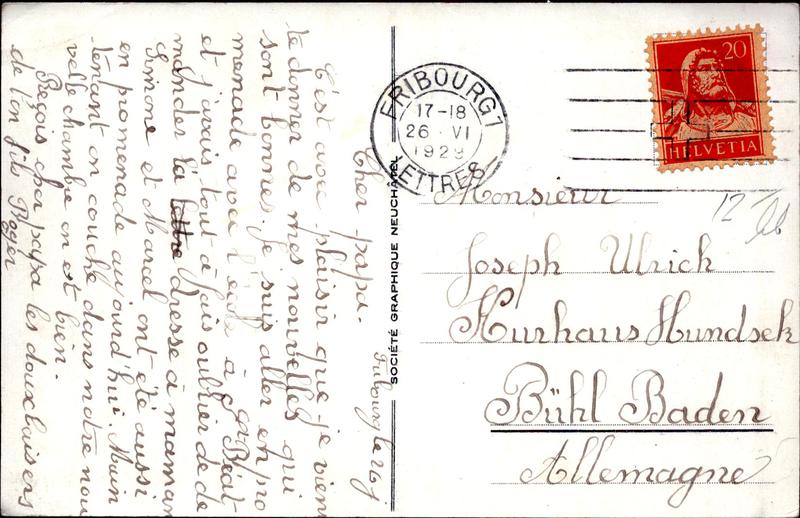 Fribourg le 26 j
Cher papa.
C'est avec plaisir que je viens
te donner de mes nouvelles qui
sont bonnes. je suis aller en pro
menade avec l'école à St Béat
et j'avais tout à fais oublier de de
mander la lettre dresse à maman
Simone et Marcel ont été aussi
en promenade aujourd'hui. Main
tenant on couche dans notre nou
velle chambre on est bien.
Reçois cher papa les doux baisers
de ton fils Roger
SOCIÉTÉ GRAPHIQUE NEUCHÂTEL
FRIBOURG 1
17-18
26 · VI
1929
LETTRES
20
HELVETIA
12
Monsieur
Joseph Ulrich
Kurhaus Hundsek
Bühl Baden
Allemagne